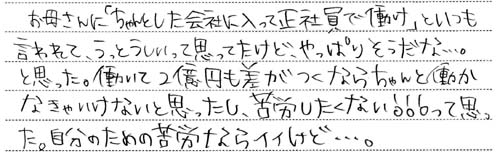 お母さんに「ちゃんとした会社に入って正社員で働け」といつも
言われてて、うっとうしいって思ってたけど、やっぱりそうだな…。
と思った。働いて2億円も差がつくならちゃんと働か
なきゃいけないと思ったし、苦労したくない!!!って思っ
た。自分のための苦労ならイイけど…。